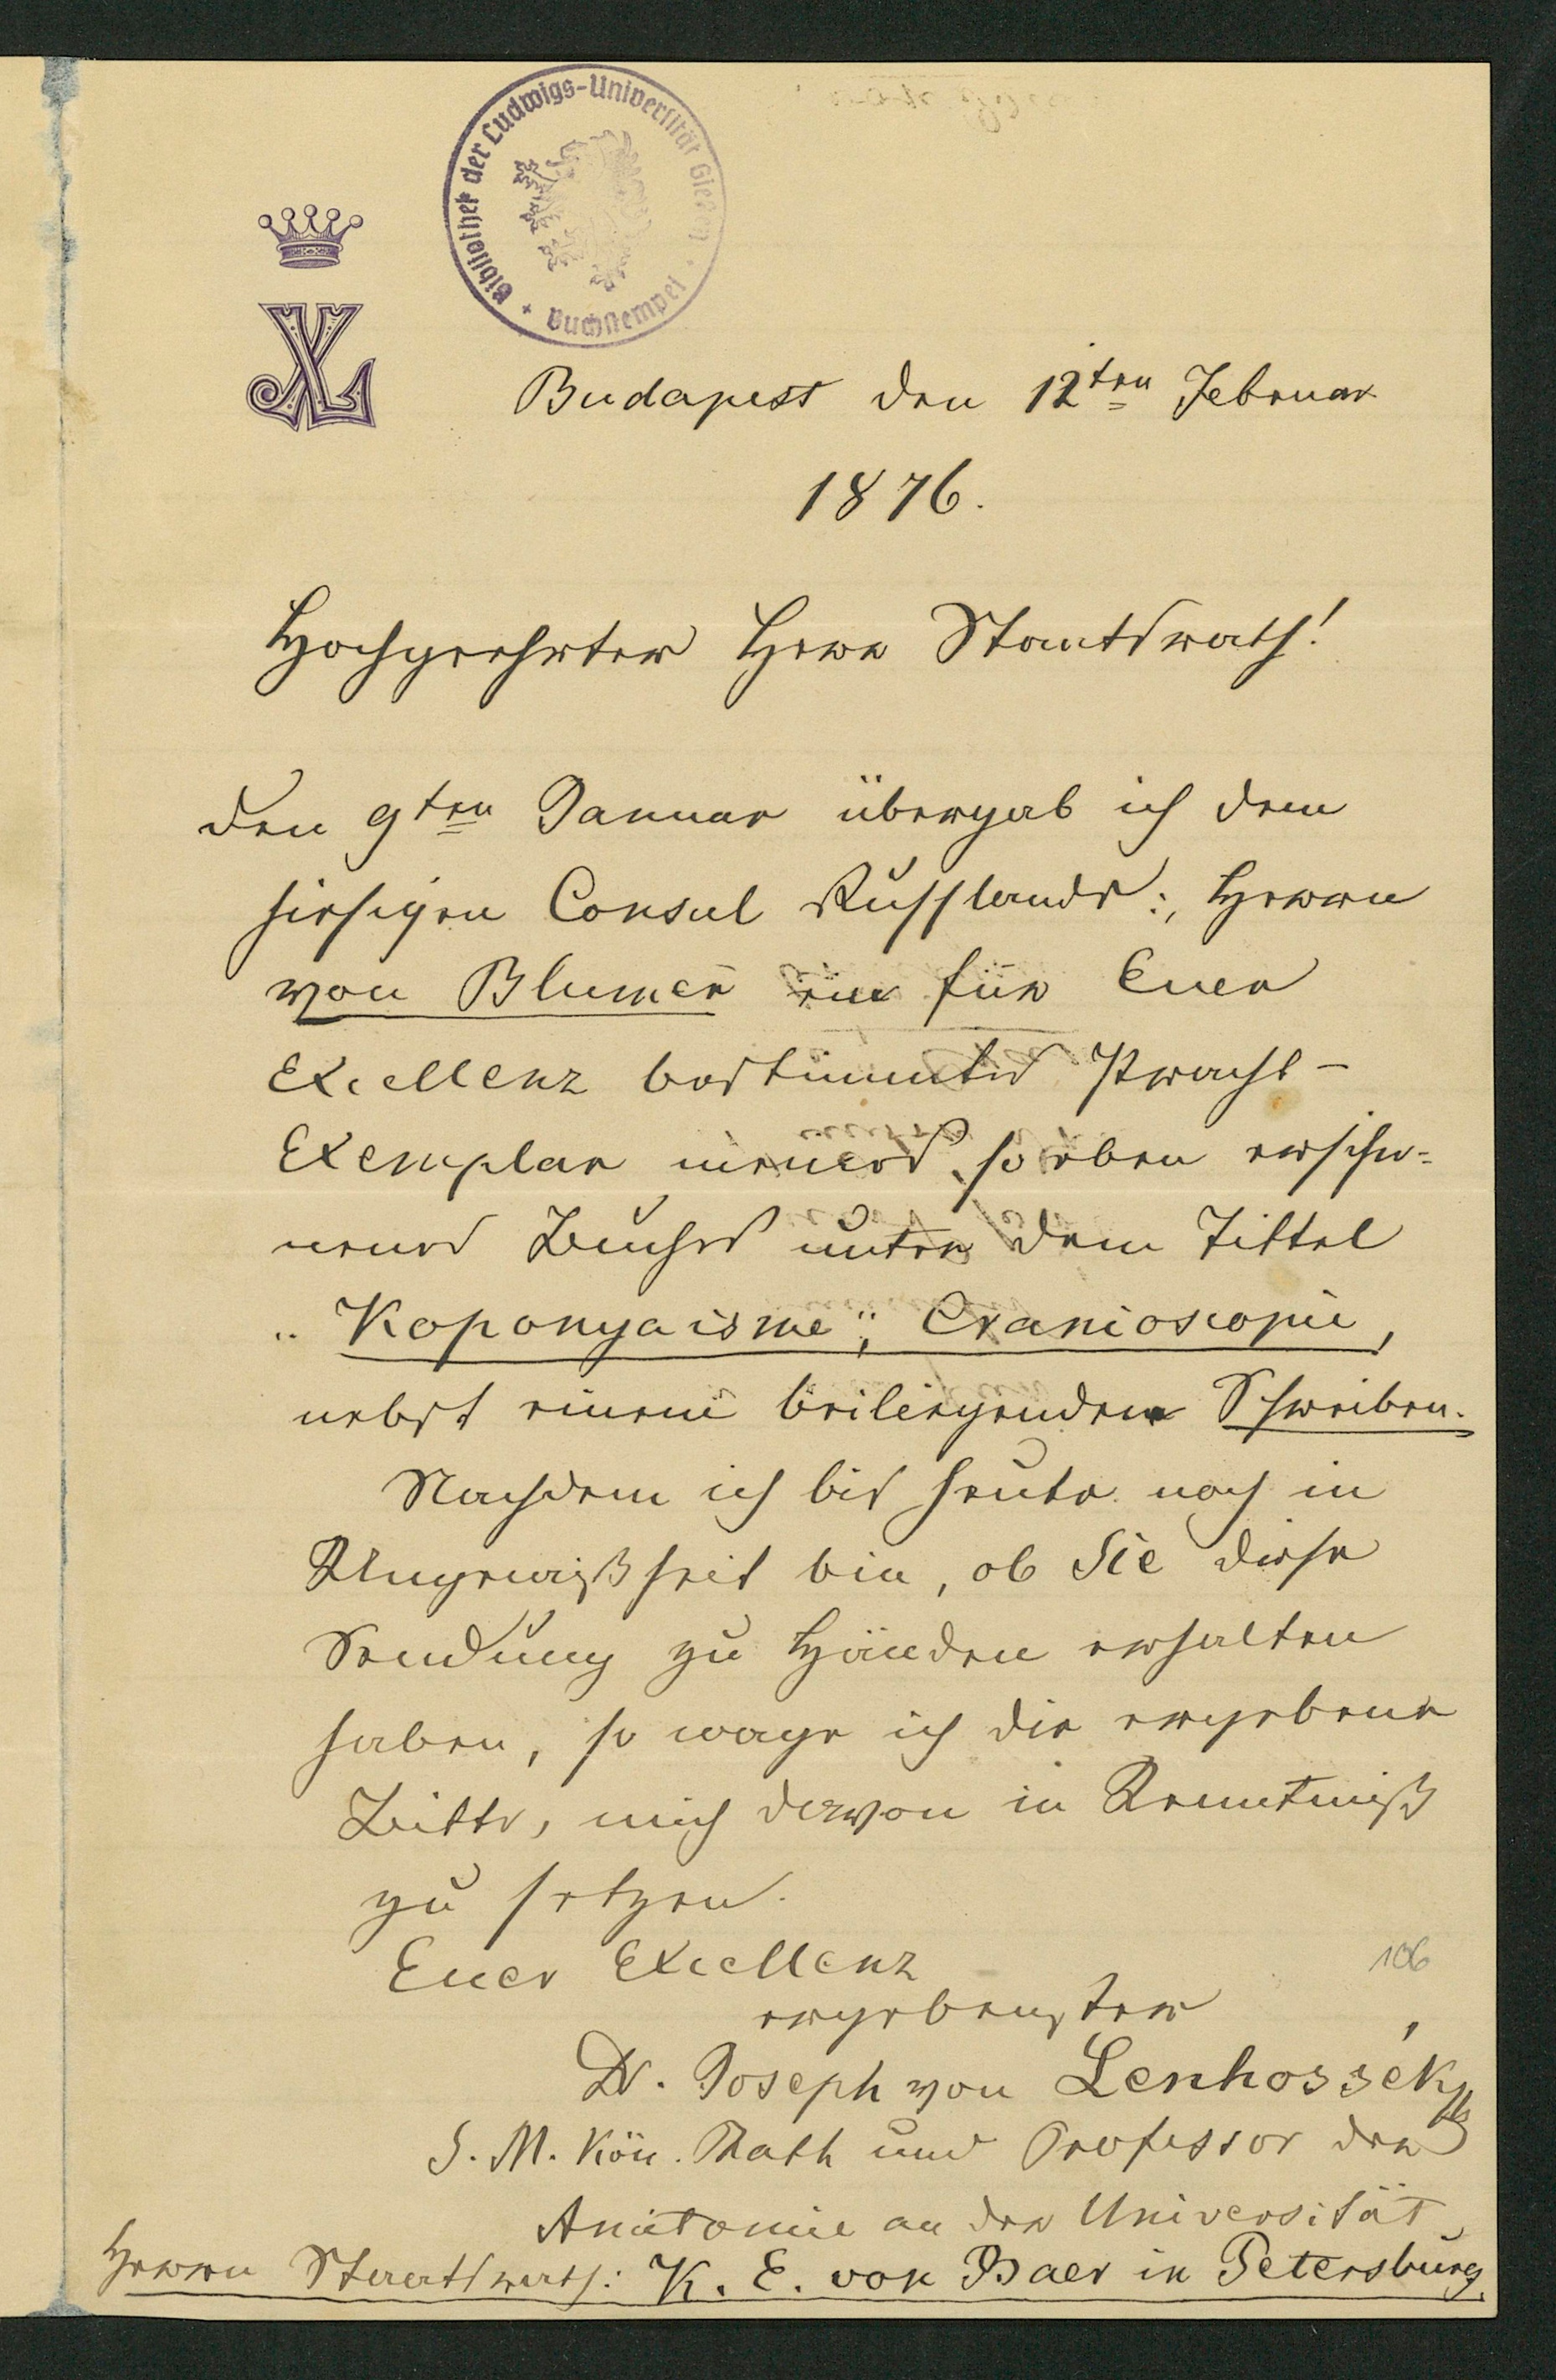 Bibliothek der Ludwigs-Universität Gießen
Buchstempel
JL
Budapest den 12ten Februar
1876.
Hochgeehrter Herr Staatsrath!
Den 9ten Januar übergab ich dem
hiesigen Consul Russlands:, Herrn
von Blumer ein für Euer
Excellenz bestimmtes Pracht-
Exemplar meines so eben erschie-
nenen Buches unter dem Tittel
"Koponyaisme", Cranioscopie,
nebst einem beiliegenden Schreiben.
Nachdem ich bis heute noch in
Ungewißheit bin, ob Sie diese
Sendung zu Händen erhalten
haben, so wage ich die ergebene
Bitte, mich davon in Kenntniß
zu setzen.
Euer Excellenz
106
ergebenster
Dr. Joseph von Lenhossék
S. M. Kön. Rath und Professor der
Anatomie an der Universität
Herrn Staatsrath: K. E. von Baer in Petersburg.